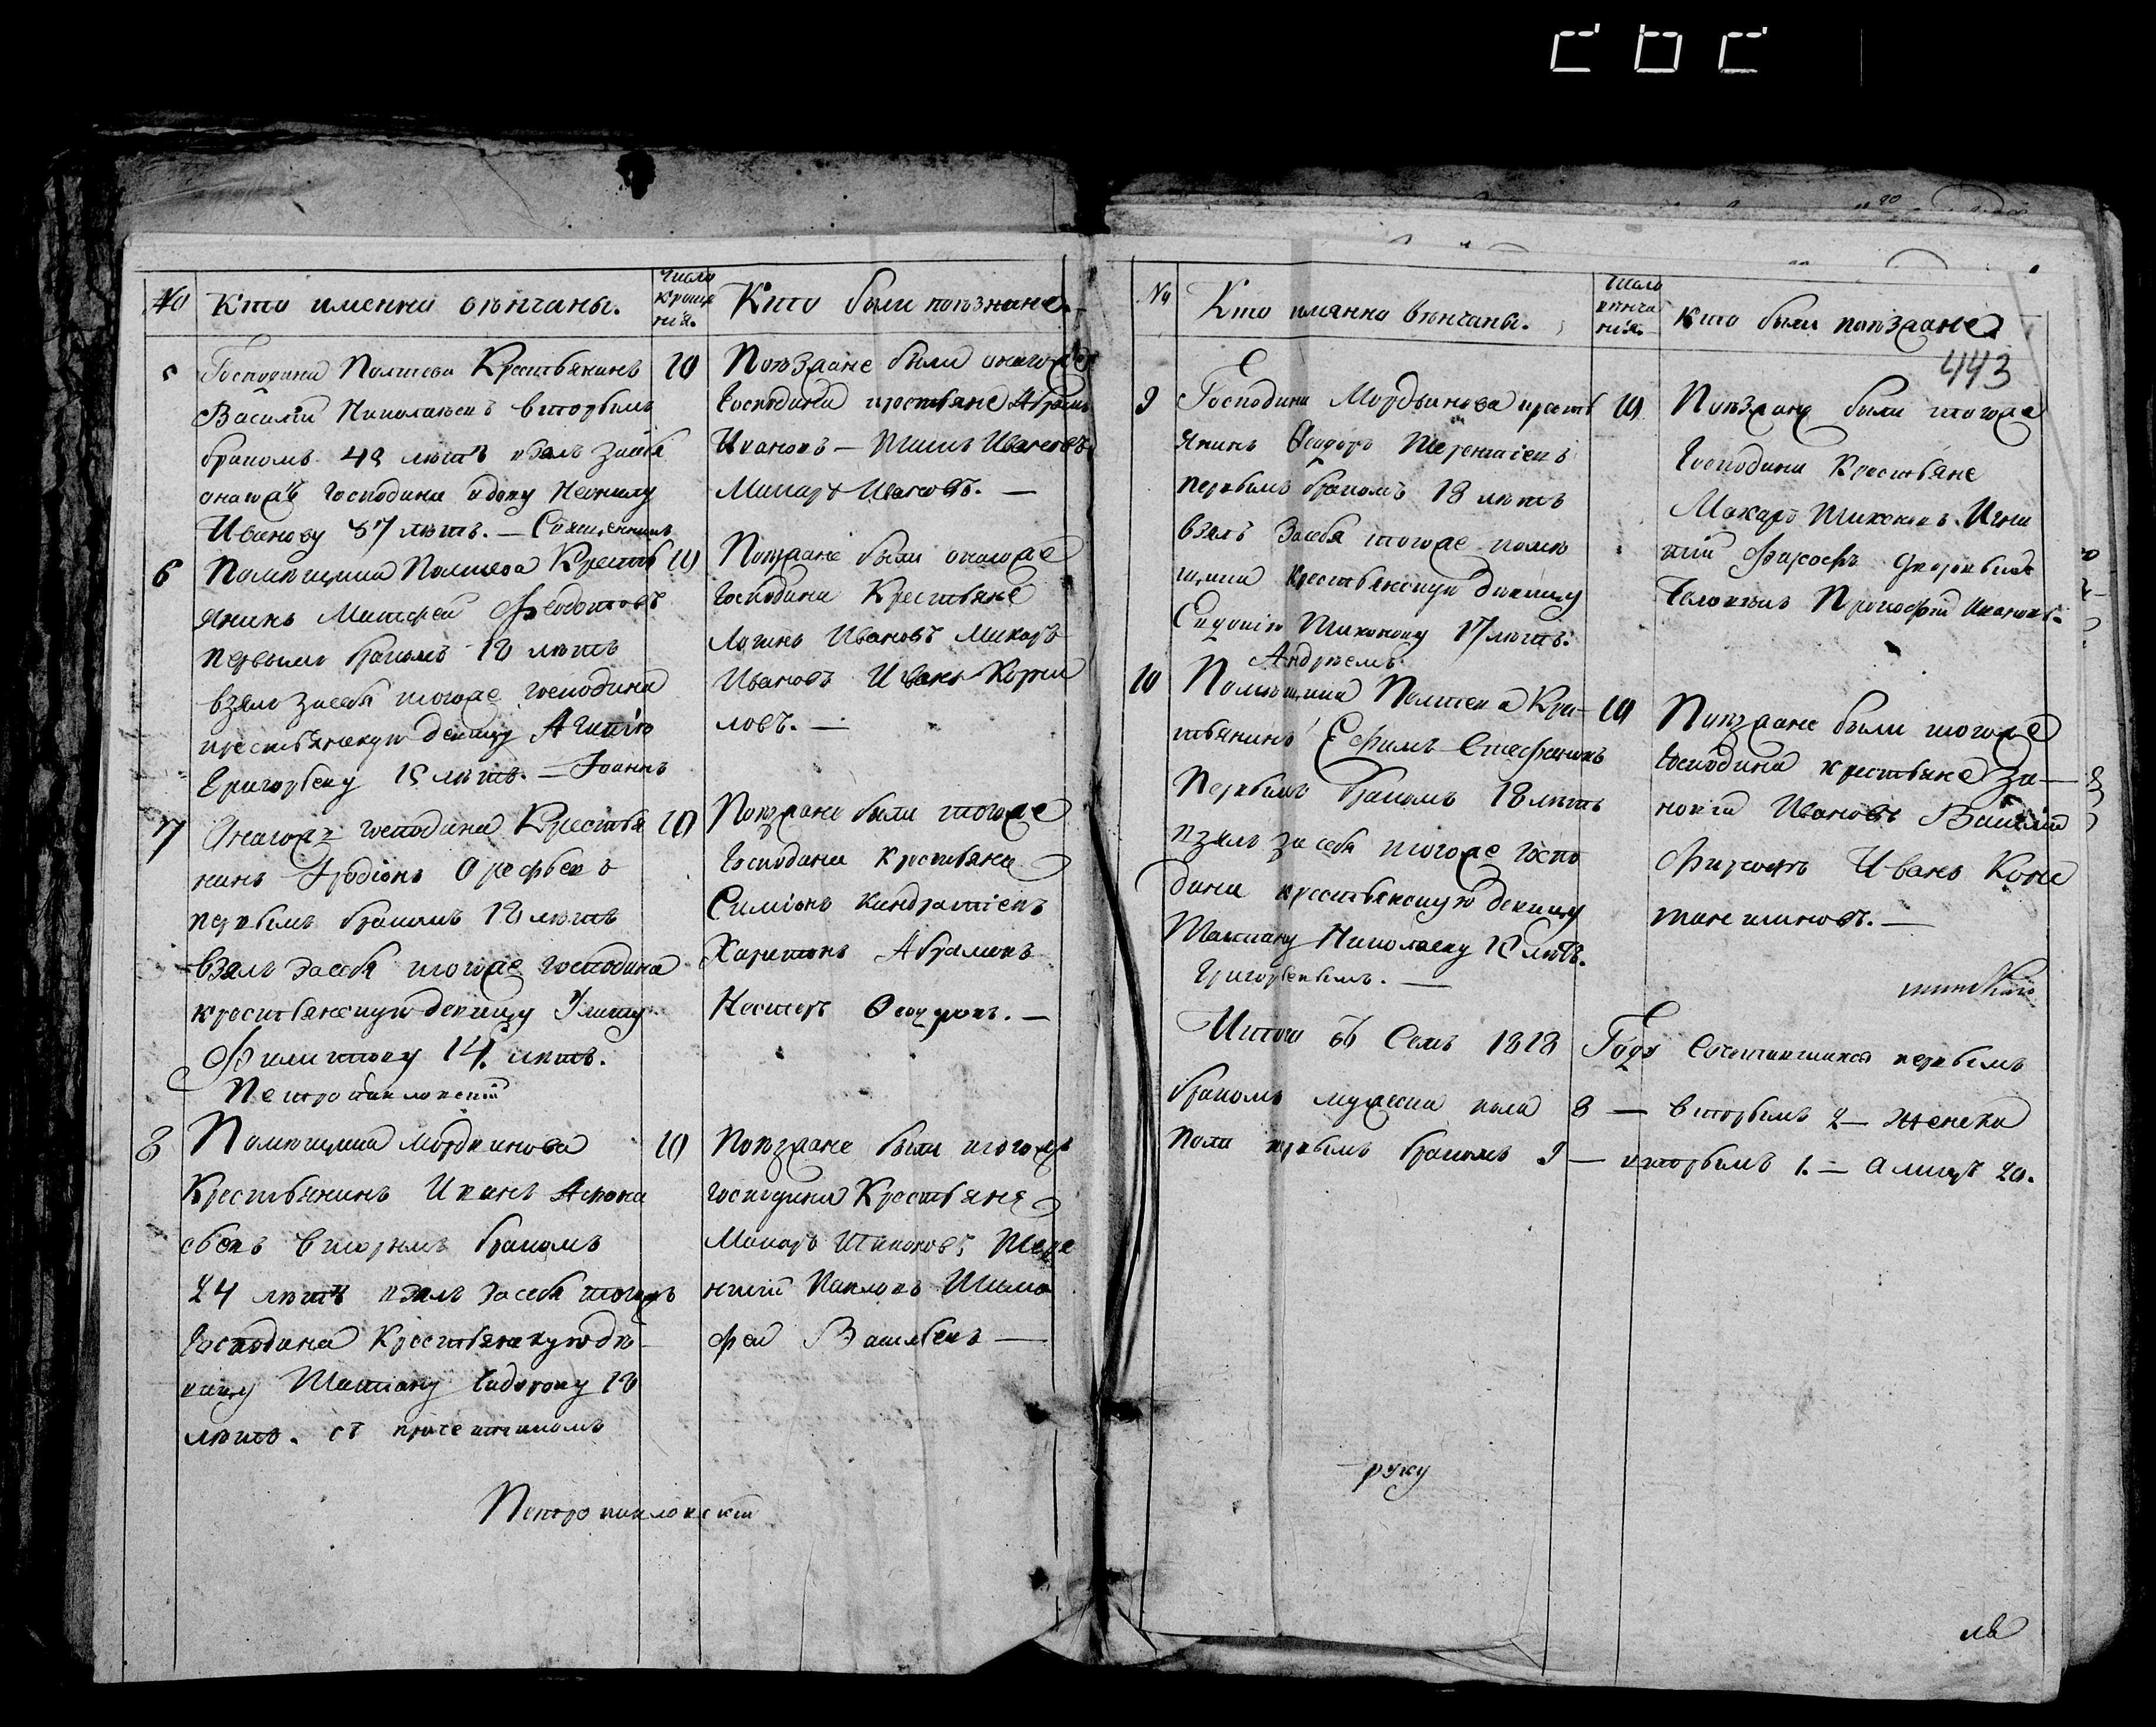 №
Кто именна венчаны.
Число
кроще
нія.
Кто были поезжане.
5
Господина Полтева Крестьянинъ
Василій Николаевъ вторымъ
бракомъ 48 летъ взялъ засебя
онагожъ господина вдову Неонилу
Иванову 37 летъ. — Священникъ
10
Поезжане были онагоже
господина крестьяне Абрамъ
Ивановъ — Иванов
Макаръ Ивановъ. —
6
Помещика Полтева Кресть
янинъ Матфей Федотовъ
первымъ бракомъ 18 летъ
взялъ засебя тогоже господина
крестьянскую девицу Агапію
Григорьеву 15 летъ. — Іоаннъ
10
Поезжане были онагоже
господина Крестьяне
Логинъ Ивановъ Макаръ
Ивановъ Иванъ Корни
ловъ. —
7
Онагожъ господина Крестья
нинъ Ародіонъ Орефьевъ
первымъ бракомъ 18 летъ
взялъ засебя тогоже господина
крестьянскую девицу Улиту
Филипову 14. летъ.
Петропавловскій
10
Поезжане были тогоже
господина крестьяне
Симіонъ Кандратіевъ
Харитонъ Абрамовъ
Нестеръ Ѳеодоровъ. —
8
Помещика Мордвинова
Крестьянинъ Иванъ Афона
сьевъ вторымъ бракомъ
24 летъ взялъ засебя тогожъ
господина Крестьянскую де
вицу Татіану Сидорову 18
летъ. съ причетникомъ
10
Поезжане были тогожъ
господина Крестьяня
Макаръ Тихоновъ Тере
нтій Павловъ Тимо
фей Васильевъ —
Петропавловскій
№
Кто имянно венчаны.
Число
венча
нія.
Кто были поезжане
443
9
Господина Мордвинова кресть
янинъ Ѳеодоръ Терентіевъ
первымъ бракомъ 18 летъ
взялъ засебя тогоже поме
щика крестьянскую девицу
Тихонову 17 летъ.
Андреемъ
10
Поезжане были тогоже
господина Крестьяне
Макаръ Тихоновъ Игна
тій Фирсовъ
Прокофій Ивановъ.
10
Помещика Полтева Кре-
стьянинъ Ефимъ Стефановъ
первымъ бракомъ 18 летъ
взялъ за себя тогоже госпо
дина крестьянскую девицу
Татиану Николаеву 18 летъ.
Григорьевымъ. —
10
Поезжане были тогоже
господина крестьяне Зи—
новій Ивановъ Василій
Фирсовъ Иванъ Конс
тантиновъ. —
Итого въ Семъ 1818 Году сочетавшихся первымъ
бракомъ мужеска пола 8 — вторымъ 2 — женска
пола первымъ бракомъ 9 — вторымъ 1. — а лицъ 20.
руку